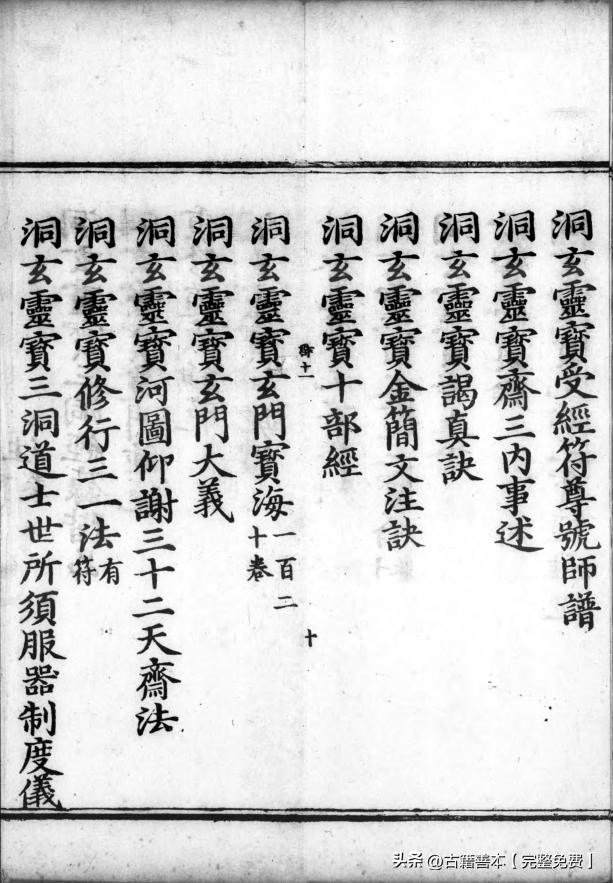 洞玄靈寶受經符尊號師譜
洞玄靈寶齋三內事述
洞玄靈寶謁真訣
洞玄靈寶金簡文注訣
洞玄靈寶十部經
十一
十
洞玄靈寶玄門寶海一百二十卷
洞玄靈寶玄門大義
洞玄靈寶河圖仰謝三十二天齋法
洞玄靈寶修行三一法有符
洞玄靈寶三洞道士世所須服器制度儀
头条 @古籍善本【完整免费】